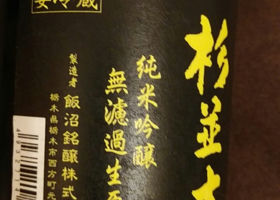 要冷蔵
杉並木
純米吟醸
無濾過生原
製造者 飯沼銘醸株式
栃木県栃木市西方町